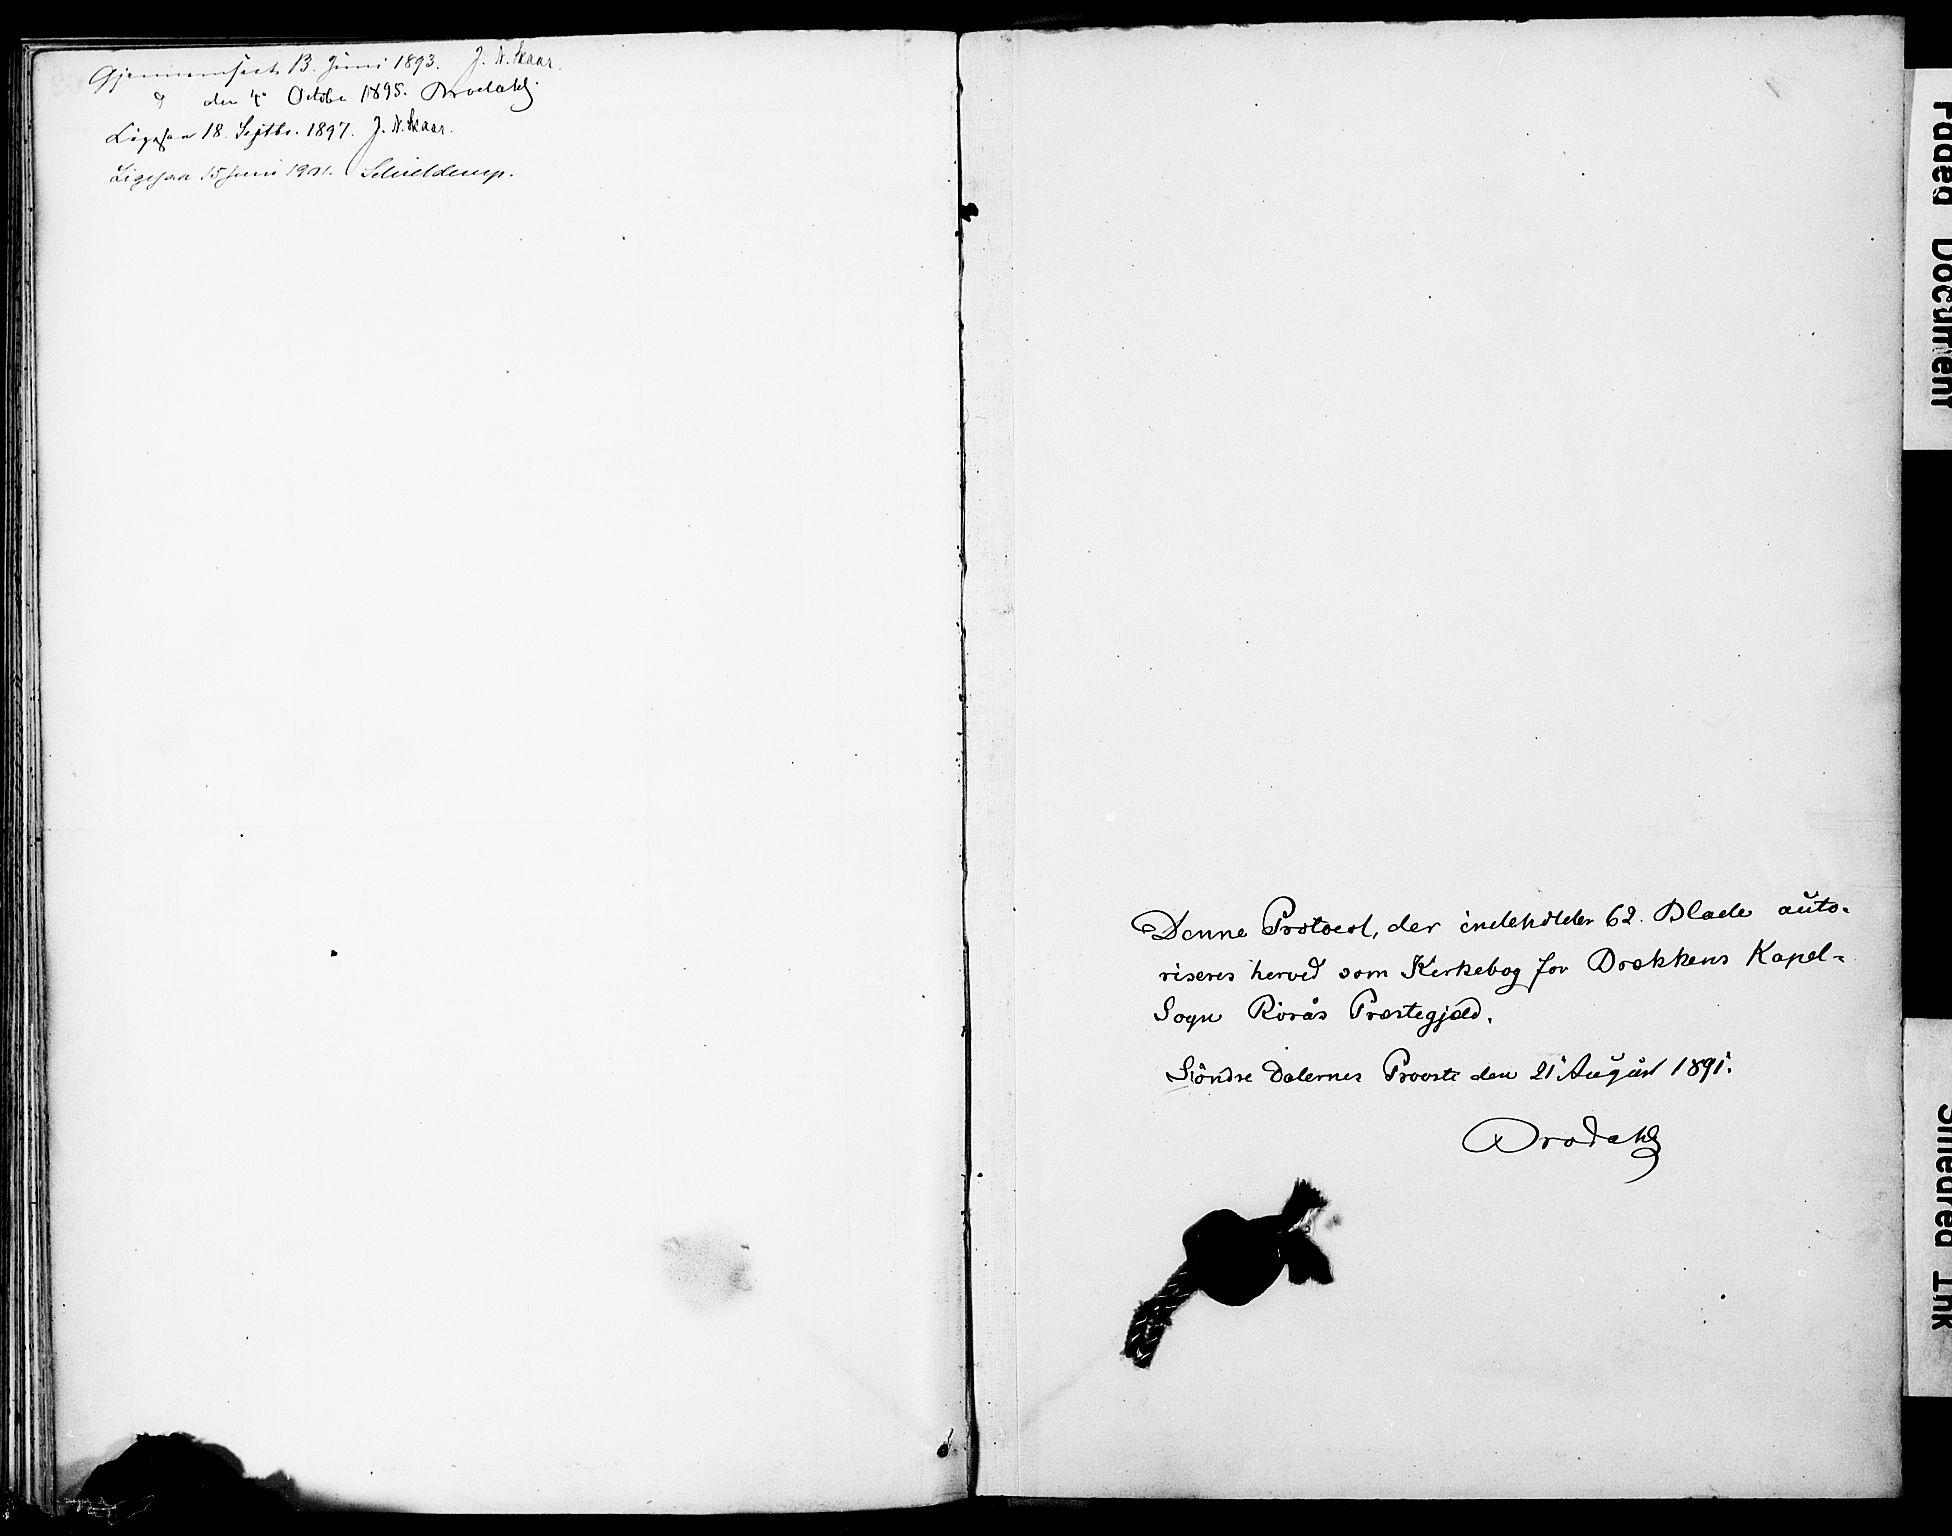 Gjennemseet 13. Juni 1893. J. N. Skaar.
den 4de Octobr 1895. Brodahl.
Ligesaa 18. Septbr. 1897. J. N. Skaar.
Ligesaa 15 Juni 1901. Schielderup.
Denne Protocol, der indeholder 62. Blade auto-
riseres herved som Kirkebog for Brekkens Kapel-
Sogn Rörås Præstegjæld.
Söndre Dalernes Provsti den 21 August 1891.
Brodahl
Faded Document
Smeared Ink